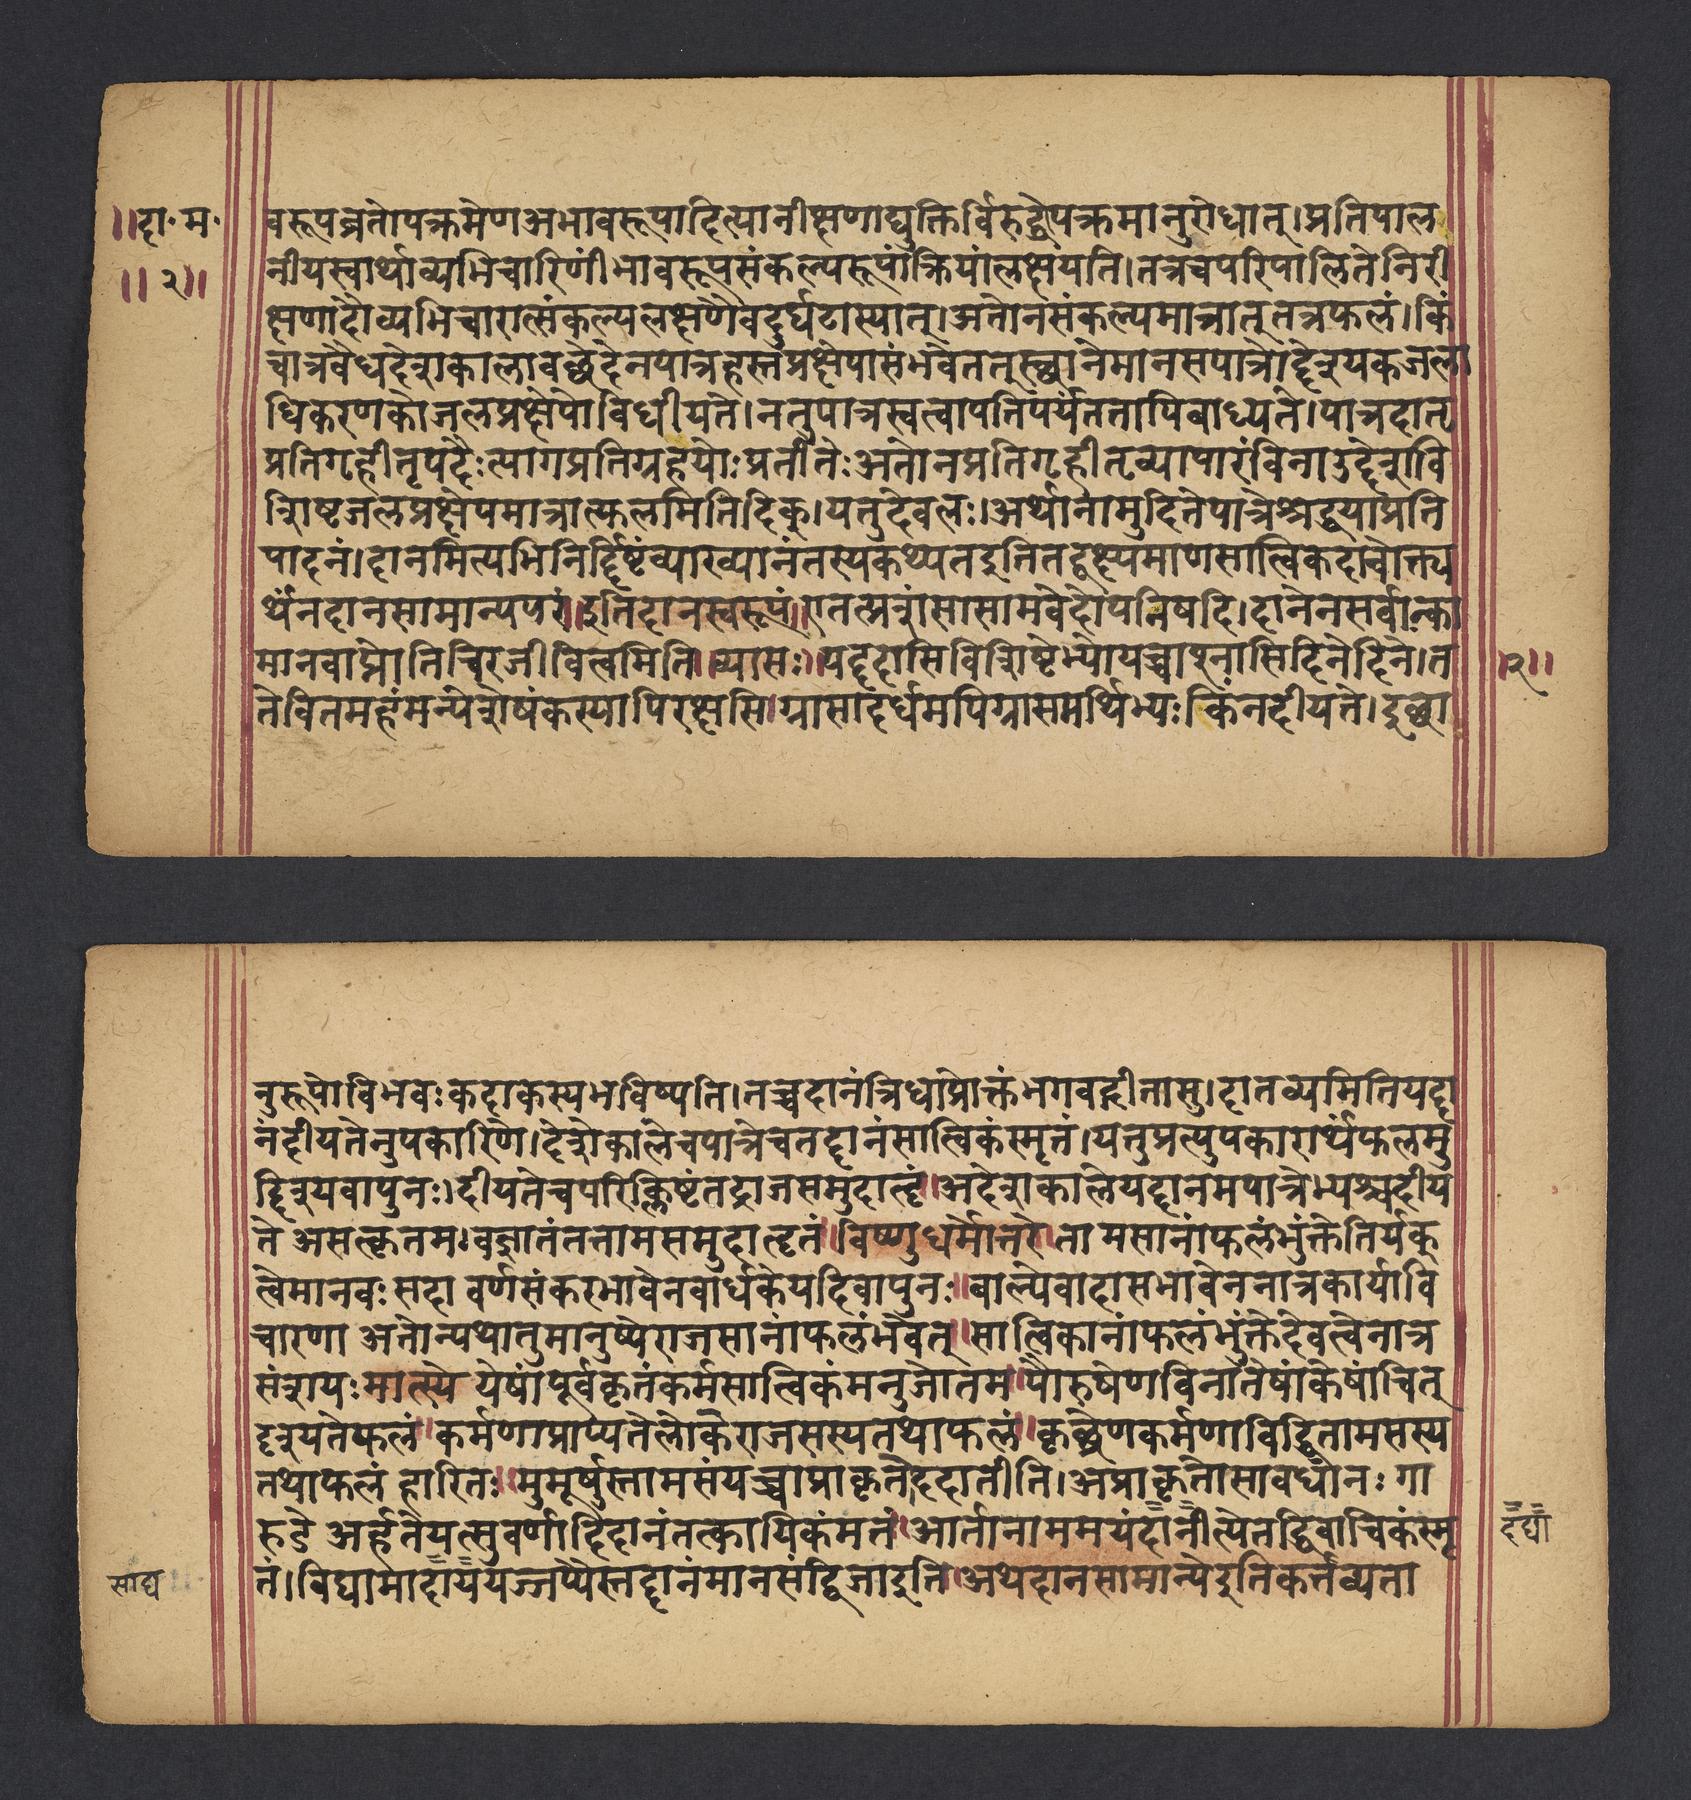 ॥दा॰म॰
॥२॥
वरूपव्रतोपक्रमेणअभावरूपादित्यानीक्षणाद्युक्तिर्विरुद्धोपक्रमानुरोधात्।प्रतिपाल
नीयस्वार्थाव्यभिचारिणींभावरूपसंकल्परूपांक्रियांलक्षयति।तत्रचपरिपालितेनिरी
क्षणादौव्यभिचारात्संकल्पलक्षणैवदुर्घटास्यात्।अतोनसंकल्पमात्रात्तत्रफलं।किं
चात्रवैधदेशकालावच्छेदेनपात्रहस्तप्रक्षेपासंभवेतत्स्थानेमानसपात्रोद्देश्यकजला
धिकरणकोजलप्रक्षेपोविधीयते।नतुपात्रस्वत्वापतिपर्यंततापिबाध्यते।पात्रदातृ
प्रतिगृहीतृपदैःत्यागप्रतिग्रहयोःप्रतीतेःअतोनप्रतिगृहीतृव्यापारंविनाउद्देशवि
शिष्टजलप्रक्षेपमात्रात्फलमितिदिक्।यत्तुदेवलः।अर्थानामुदितेपात्रेश्रद्धयाप्रति
पादनं।दानमित्यभिनिर्द्दिष्टंव्याख्यानंतस्यकथ्यतइतितद्वक्ष्यमाणसात्विकदाचोक्त्य
र्थंनदानसामान्यपरं॥इतिदानस्वरूपं॥एतत्प्रशंसासामवेदोपनिषदि।दानेनसर्वान्का
मानवाप्नोतिचिरजीवित्वमिति॥व्यासः॥यद्ददासिविशिष्टेभ्योयच्चाश्नासिदिनेदिने।त
त्तेवित्तमहंमन्येशेषंकस्यापिरक्षसि।ग्रासादर्धमपिग्रासमर्थिभ्यःकिंनदीयते।इच्छा
॥२॥
नुरूपोविभवःकदाकस्यभविष्यति।तच्चदानंत्रिधाप्रोक्तंभगवद्गीतासु।दातव्यमितियद्दा
नंदीयतेनुपकारिणे।देशेकालेचपात्रेचतद्दानंसात्विकंस्मृतं।यत्तुप्रत्युपकारार्थंफलमु
द्दिश्यवापुनः।दीयतेचपरिक्लिष्टंतद्राजसमुदाहृतं॥अदेशकालेयद्दानमपात्रेभ्यश्चदीय
ते असत्कृतमवज्ञातंतत्तामसमुदाहृतं॥विष्णुधर्मोत्तरे॥तामसानांफलंभुंक्तेतिर्यक्
त्वेमानवःसदा वर्णसंकरभावेनवार्धकेयदिवापुनः॥बाल्येवादासभावेननात्रकार्यावि
चारणा अतोन्यथातुमानुष्येराजसानांफलंभवेत्॥सात्विकानांफलंभुंक्तेदेवत्वेनात्र
संशयः मात्स्ये येषांपूर्वकृतंकर्मसात्विकंमनुजोत्तम॥पौरुषेणविनातेषांकेषांचित्
दृश्यतेफलं॥कर्मणाप्राप्यतेलोकेराजसस्यतथाफलं॥कृच्छ्रेणकर्मणाविद्धितामसस्य
तथाफलं हारितः॥मुमूर्षुस्तामसंयच्चाप्राकृतोददातीति।अप्राकृतोसावधानः गा
रुडे अर्हतेयत्सुवर्णादिदानंतत्कायिकंमतं॥आर्तानामभयंदानीत्येतद्धिवाचिकंस्मृ
तं।विद्यामादाययज्जप्यैस्तद्दानंमानसंद्विजाइति॥अथदानसामान्येइतिकर्त्तव्यता
दद्या
साद्य